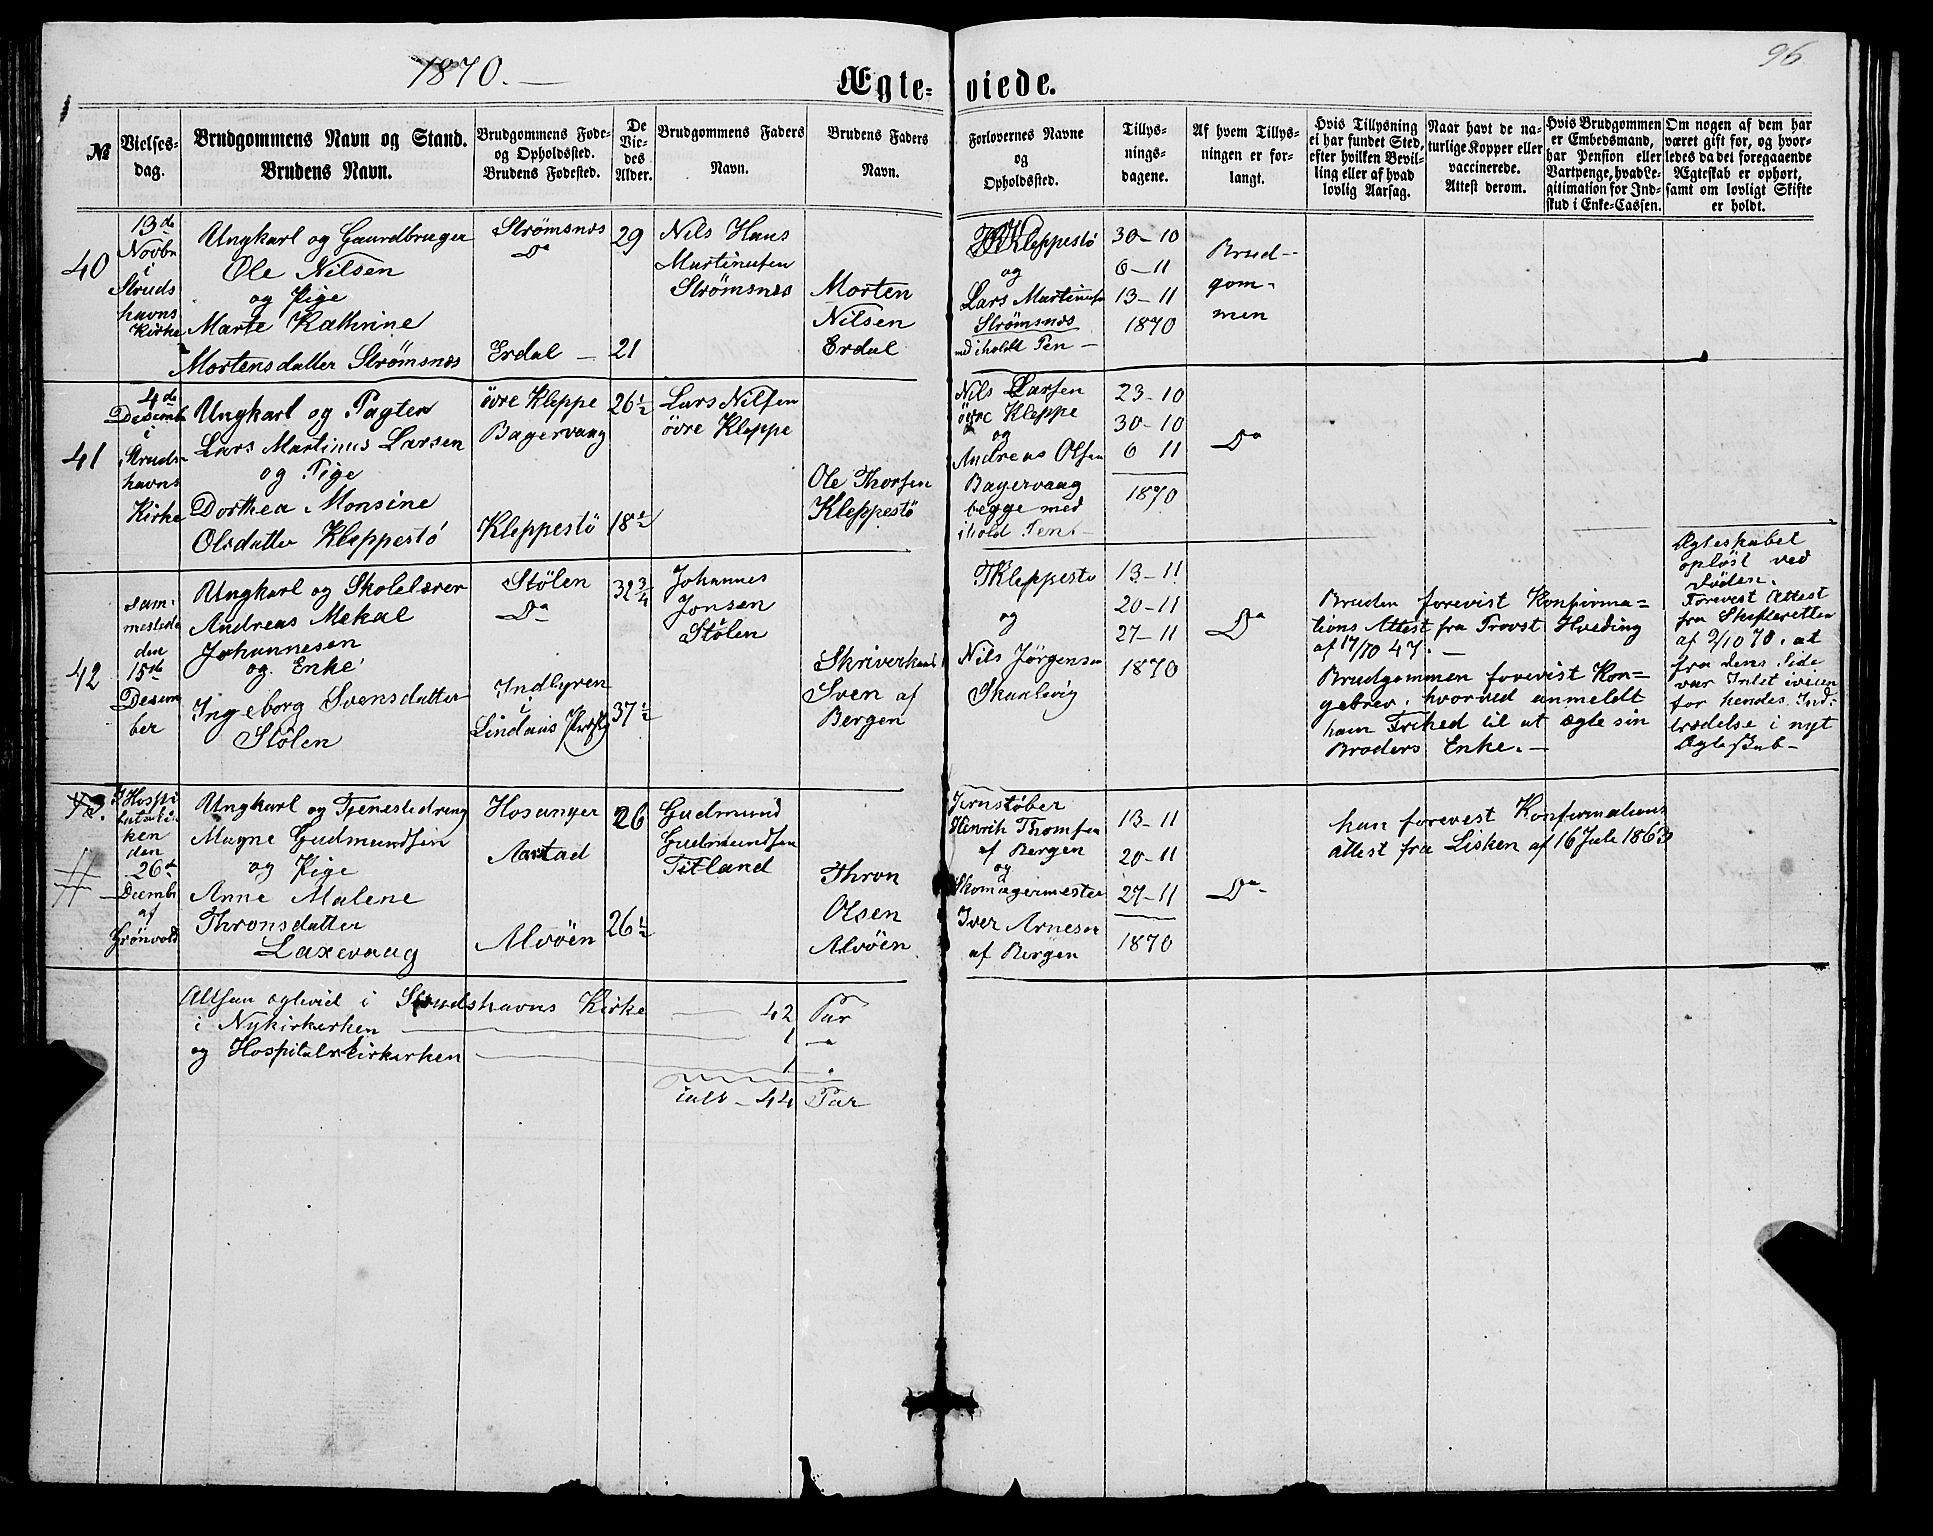 1870. —
Ægte-viede.
96
№
Vielses-
dag.
Brudgommens Navn og Stand.
Brudens Navn.
Brudgommens Føde-
og Opholdssted.
Brudens Fødested.
De
Vie-
des
Alder.
Brudgommens Faders
Navn.
Brudens Faders
Navn.
Forlovernes Navne
og
Opholdssted.
Tillys-
nings-
dagene.
Af hvem Tillys-
ningen er for-
langt.
Hvis Tillysning
ei har fundet Sted,
efter hvilken Bevil-
ling eller af hvad
lovlig Aarsag.
Naar havt de na-
turlige Kopper eller
vaccinerede.
Attest derom.
Hvis Brudgommen
er Embedsmand,
har Pension eller
Vartpenge, hvad Le-
gitimation for Ind-
skud i Enke-Cassen.
Om nogen af dem har
været gift før, og hvor-
ledes da det foregaaende
Ægteskab er ophørt,
samt om lovligt Skifte
er holdt.
40
13de
Novbr
i
Struds
havns
Kirke
Ungkarl og Gaardbruger
Ole Nilsen
og Pige
Marte Kathrine
Mortensdatter Strömsnes
Strömsnes
Do
Erdal —
29
21
Nils Hans
Martinusen
Strömsnes
Morten
Nilsen
Erdal
Kleppestö
og
Lars Martinusen
Strömsnes
med iholdt Pen —
30-10
6-11
13-11
1870
Brud-
gom-
men
41
4de
Desemb
i
Struds-
havns
Kirke
Ungkarl og
Lars Martinus Larsen
og Pige
Dorthea Monsine
Olsdatter Kleppestö
övre Kleppe
Bagervaag
Kleppestö
26½
18½
Lars Nilsen
övre Kleppe
Ole Thorsen
Kleppestö
Nils Larsen
övre Kleppe
og
Andreas Olsen
Bagervaag
begge med
ihold Pen
23-10
30-10
6 11
1870
Do
42
sam-
mesteds
den
15de
Desem
ber
Ungkarl og Skolelærer
Andreas Mekal
Johannesen
og Enke
Ingeborg Svensdatter
Stölen
Stölen
Do
Indbyren
i
Lindaas
32¾
37½
Johannes
Jonsen
Stölen
Sven af
Bergen
Kleppestö
og
Nils Jörgensen
Skaalevig
13-11
20-11
27-11
1870
Do
Bruden forevist Konfirma-
tions Attest fra Provst Hveding
af 17/10 47. —
Brudgommen forevist Kon-
gebrev, hvorved anmeldt
ham Frihed til at ægte sin
Broders Enke. —
Ægteskabet
oplöst ved
Döden.
Forevist Attest
fra Skifteretten
af 9/10 70. at
fra dens Side
var Intet iveien
for hendes Ind-
trædelse i nyt
Ægteskab —
43.
I Hospi
talski
ken
den
26de
Decembr
af
Grönvold
Ungkarl og Tjenestedreng
Magne Gudmundsen
og Pige
Anne Malene
Thronsdatter
Laxevaag
Hosanger
Aastad
Alvöen
26
26½
Gudmund
Gudmundsen
Titland
Thron
Olsen
Alvöen
Jernstöber
Henrik Thomsen
af Bergen
og
Skomagermester
Iver Arnesen
af Bergen
13-11
20-11
27-11
1870
Do
han forevist Konfirmations
attest fra Lisken af 16 Juli 1863
Altsaa egteviet i Strudshavns Kirke — 42 Par
i Nykirkerken — 1 —
og Hospitalskirkerken — 1 "
ialt — 44 Par